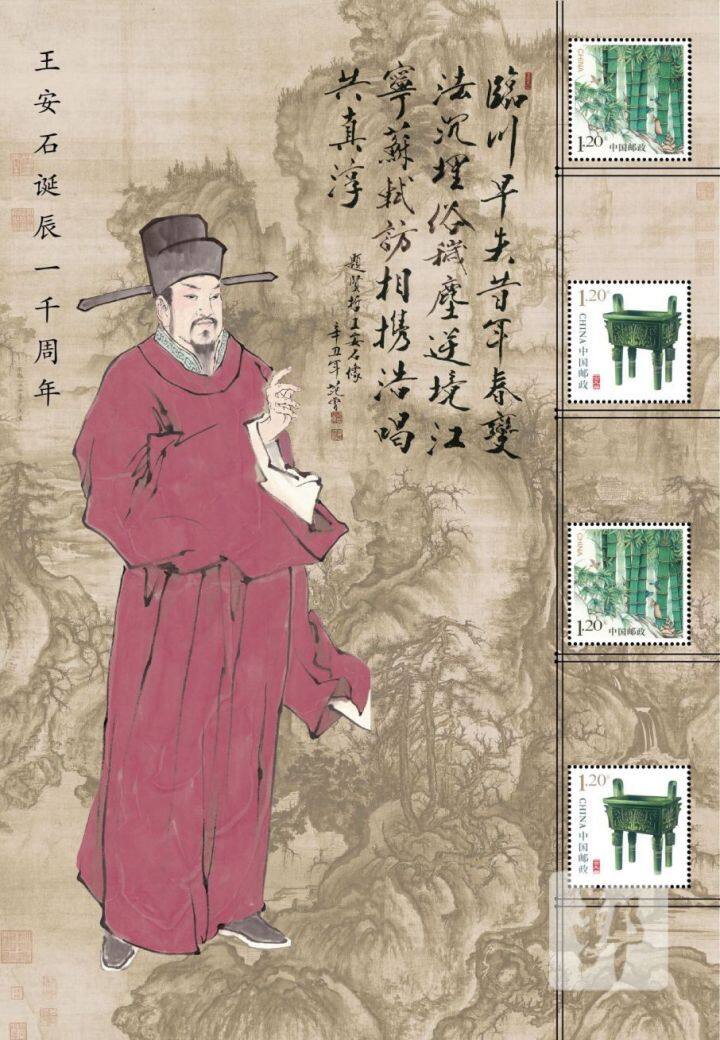 王安石诞辰一千周年
臨川早失昔年春變
法沉埋俗穢塵逆境江
寧蘇軾訪相攜浩唱
共真淳
題賢哲王安石像
辛丑年范曾
CHINA
1.20元
中国邮政
1.20元
CHINA中国邮政
CHINA
1.20元
中国邮政
1.20元
CHINA中国邮政